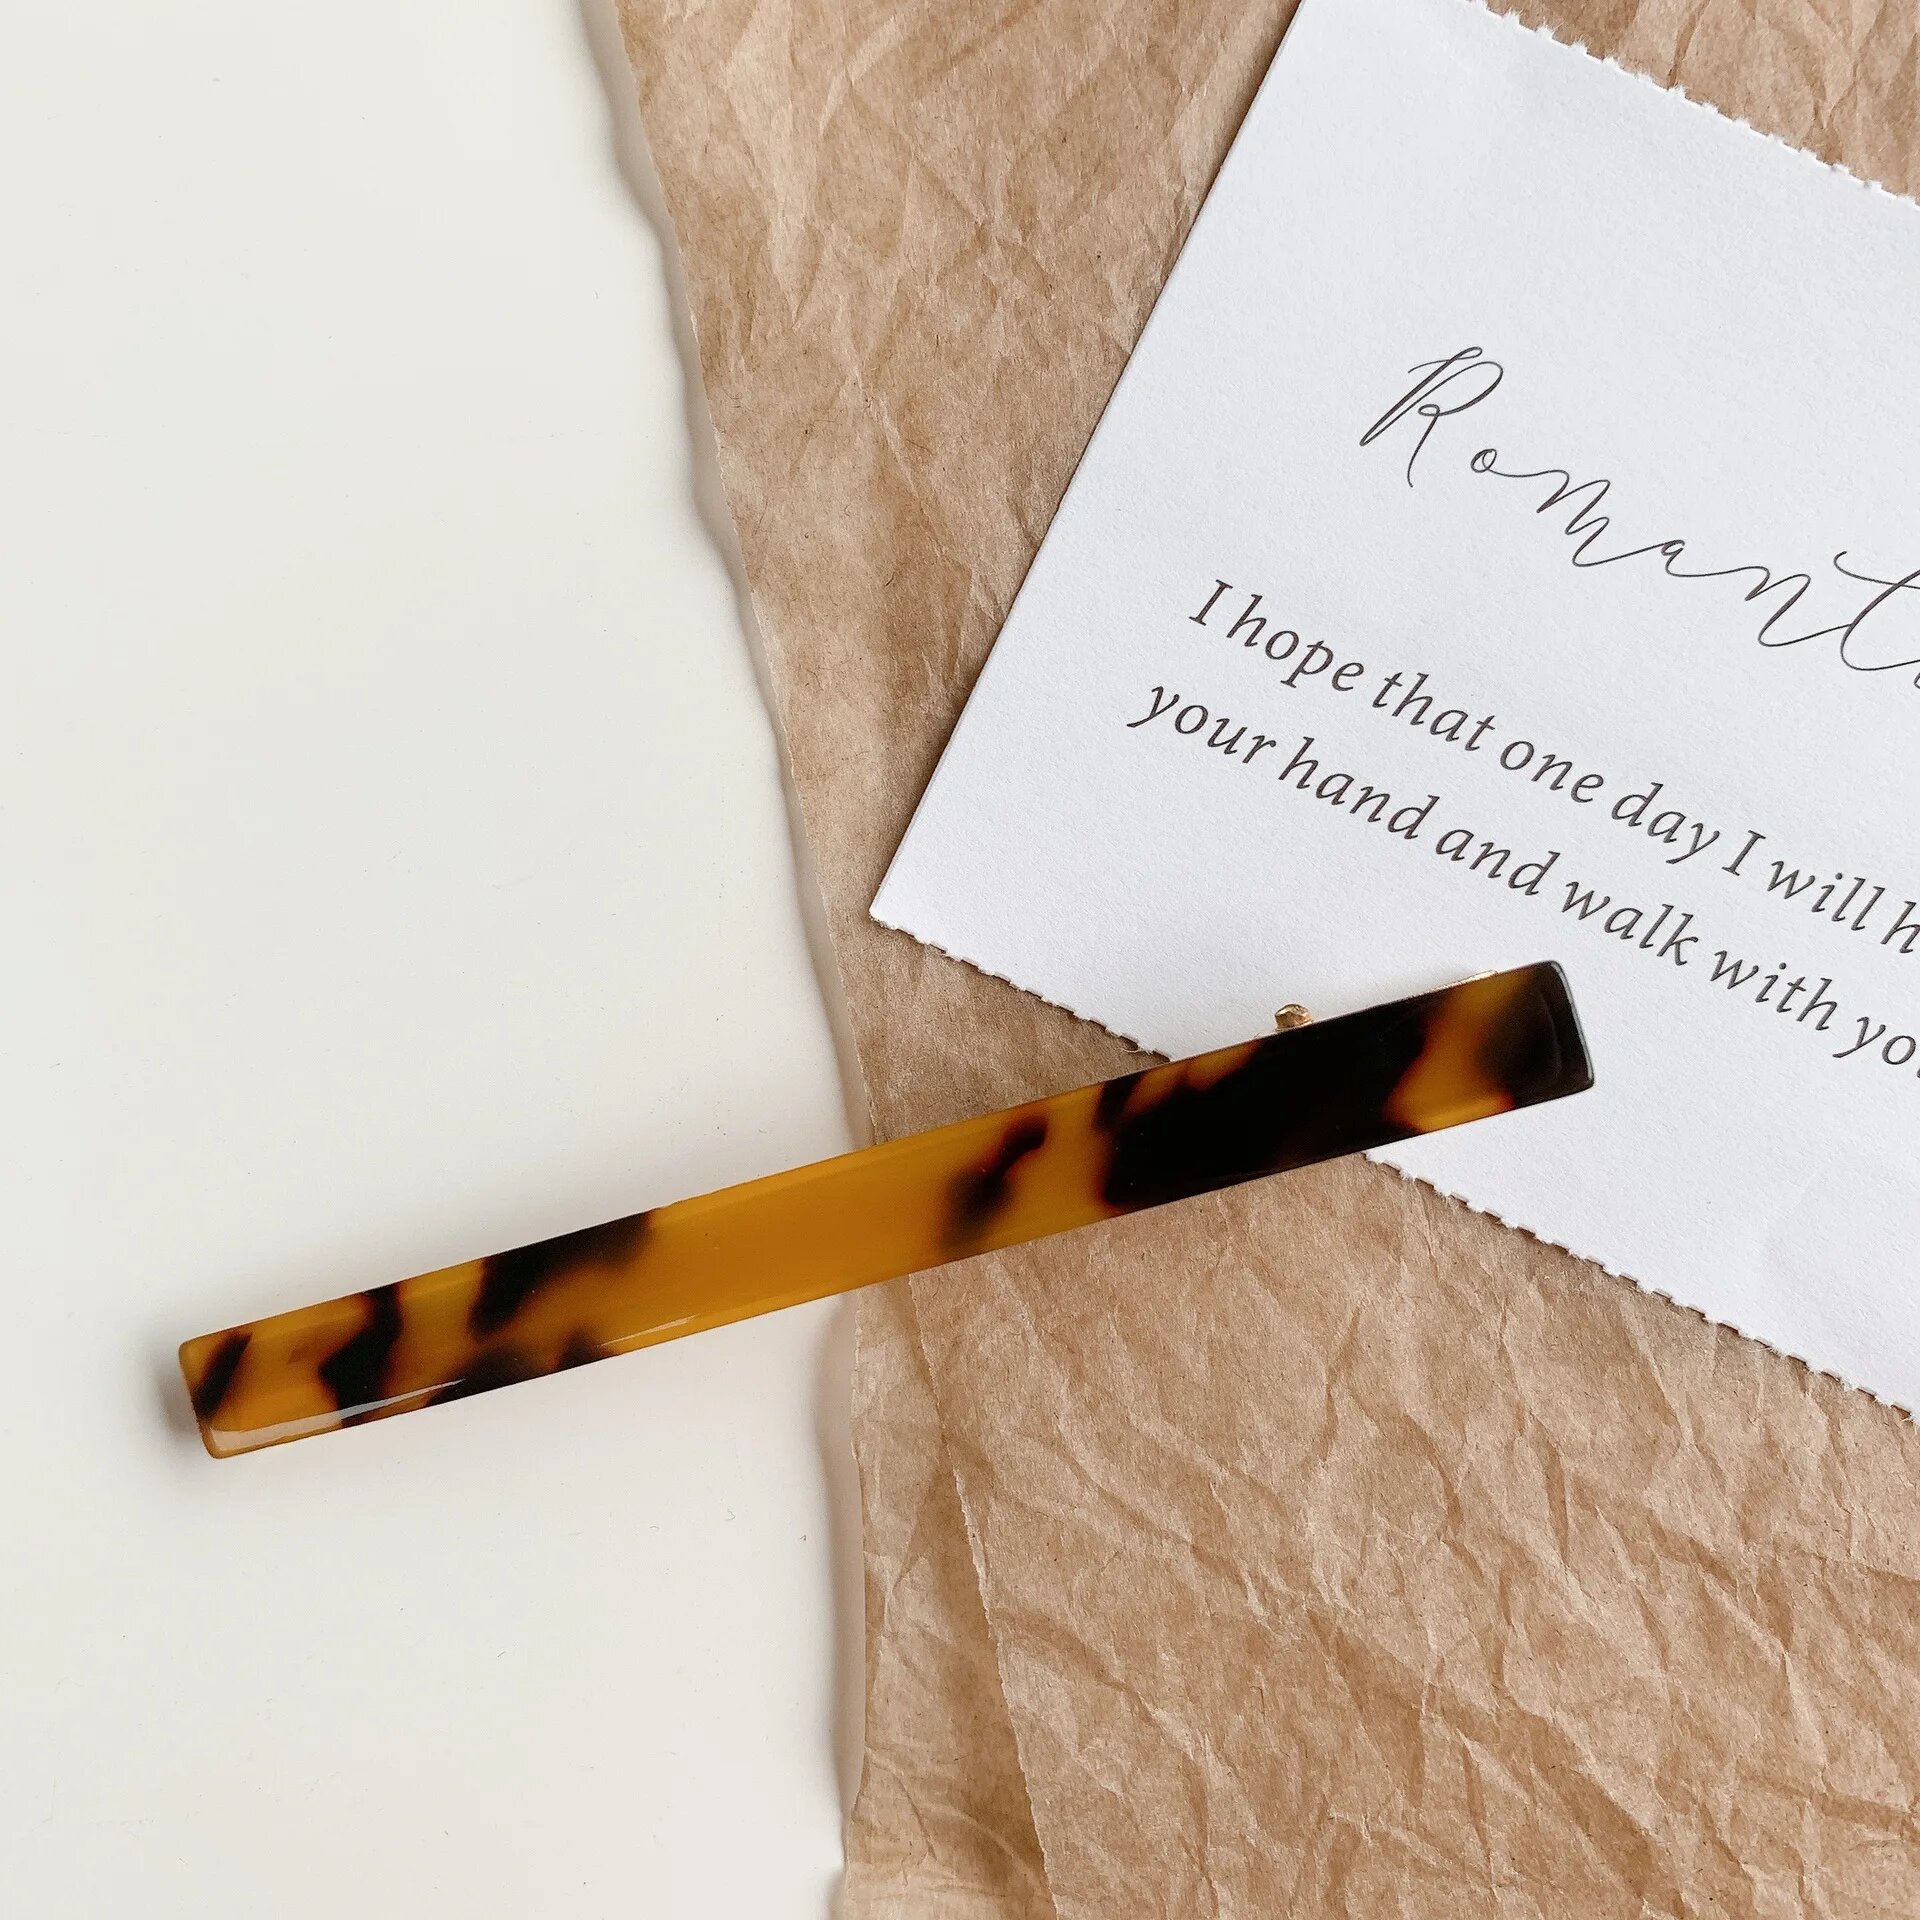 Romant
I hope that one day I will h
your hand and walk with yo